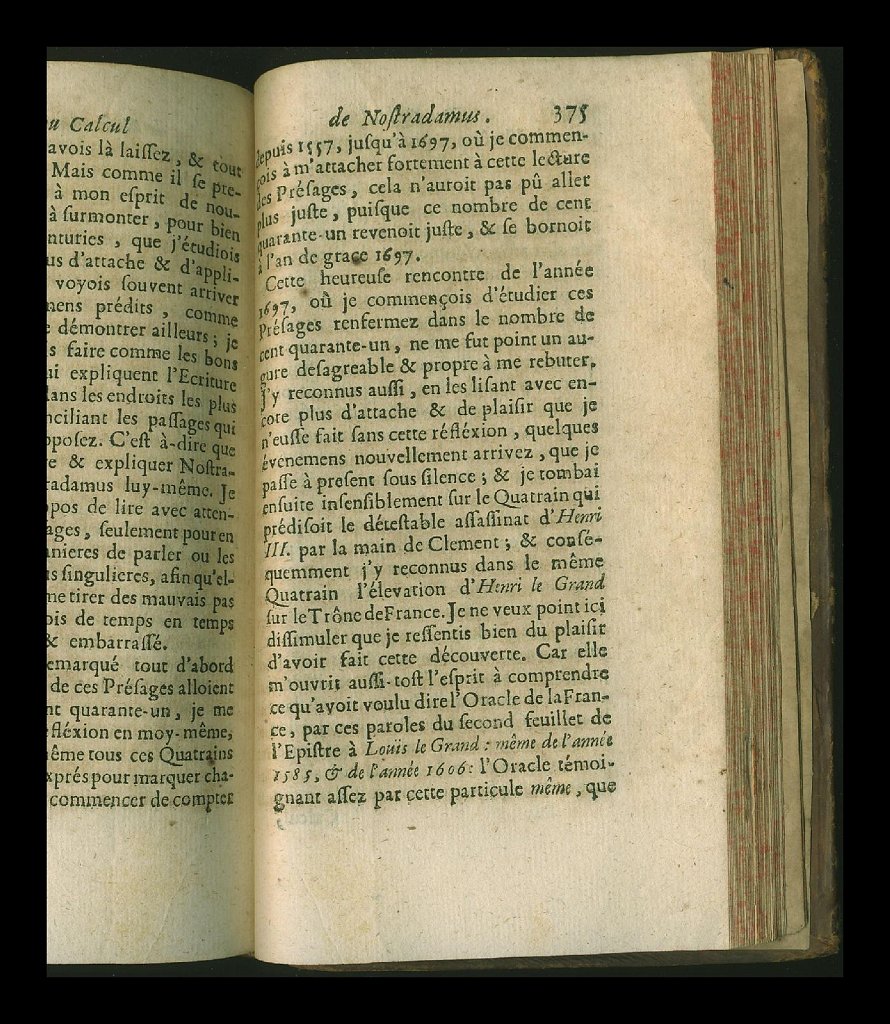 Calcul
avois là laissez, & tout
Mais comme il se pre-
à mon esprit de nou-
à surmonter, pour bien
nturies, que j'étudiois
us d'attache & d'appli-
voyois souvent arriver
mens prédits, comme
démontrer ailleurs; je
s faire comme les bons
ui expliquent l'Ecriture
dans les endroits les plus
nciliant les passages qui
pposez. C'est à-dire que
e & expliquer Nostra-
radamus luy-même. Je
pos de lire avec atten-
ages, seulement pour en
anieres de parler ou les
s singulieres, afin qu'el-
me tirer des mauvais pas
ois de temps en temps
& embarrassé.
emarqué tout d'abord
de ces Présages alloient
nt quarante-un, je me
fléxion en moy-même,
ême tous ces Quatrains
xprés pour marquer cha-
commencer de compter
de Nostradamus. 375
depuis 1557, jusqu'à 1697, où je commen-
çois à m'attacher fortement à cette lecture
des Présages, cela n'auroit pas pû aller
plus juste, puisque ce nombre de cent
quarante-un revenoit juste, & se bornoit
à l'an de grace 1697.
Cette heureuse rencontre de l'année
1697, où je commençois d'étudier ces
Présages renfermez dans le nombre de
cent quarante-un, ne me fut point un au-
gure desagreable & propre à me rebuter.
J'y reconnus aussi, en les lisant avec en-
core plus d'attache & de plaisir que je
n'eusse fait sans cette réfléxion, quelques
évenemens nouvellement arrivez, que je
passe à present sous silence; & je tombai
ensuite insensiblement sur le Quatrain qui
prédisoit le détestable assassinat d'Henri
III. par la main de Clement; & conse-
quemment j'y reconnus dans le même
Quatrain l'élevation d'Henri le Grand
sur le Trône de France. Je ne veux point ici
dissimuler que je ressentis bien du plaisir
d'avoir fait cette découverte. Car elle
m'ouvrit aussi-tost l'esprit à comprendre
ce qu'avoit voulu dire l'Oracle de la Fran-
ce, par ces paroles du second feuillet de
l'Epistre à Loüis le Grand : même de l'année
1585, & de l'année 1606: l'Oracle témoi-
gnant assez par cette particule même, que